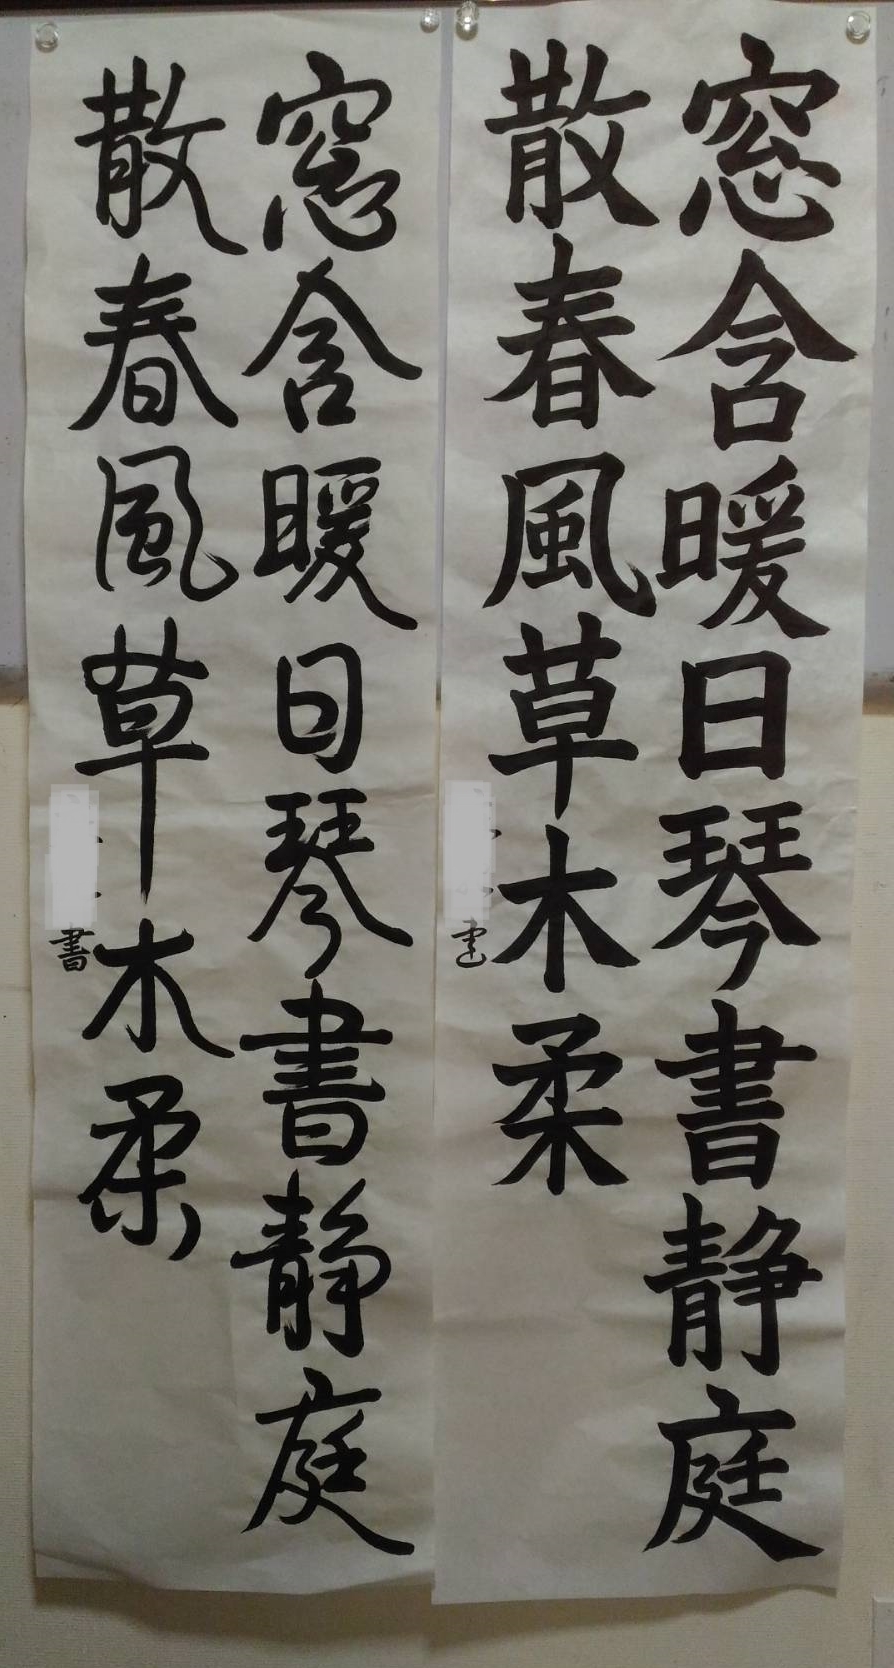 窓含暖日琴書静庭
散春風草木柔
窓含暖日琴書静庭
散春風草木柔
書